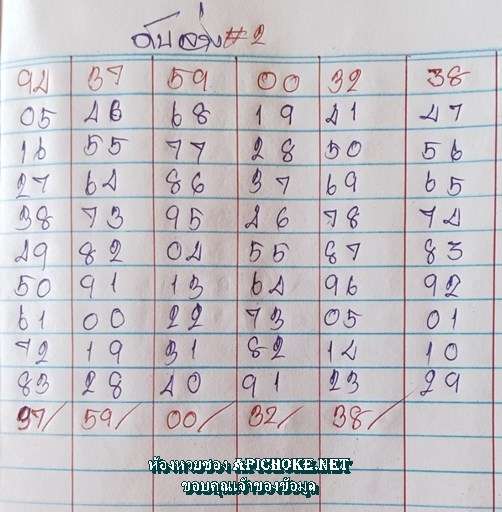 ดับวิ่ง #2
94 37 59 00 32 38
05 46 68 19 41 47
16 55 77 28 50 56
27 64 86 37 69 65
38 73 95 46 78 74
49 82 04 55 87 83
50 91 13 64 96 92
61 00 22 73 05 01
72 19 31 82 14 10
83 28 40 91 23 29
37/ 59/ 00/ 32/ 38/
ห้องหวยซอง APICHOKE.NET
ขอบคุณเจ้าของข้อมูล